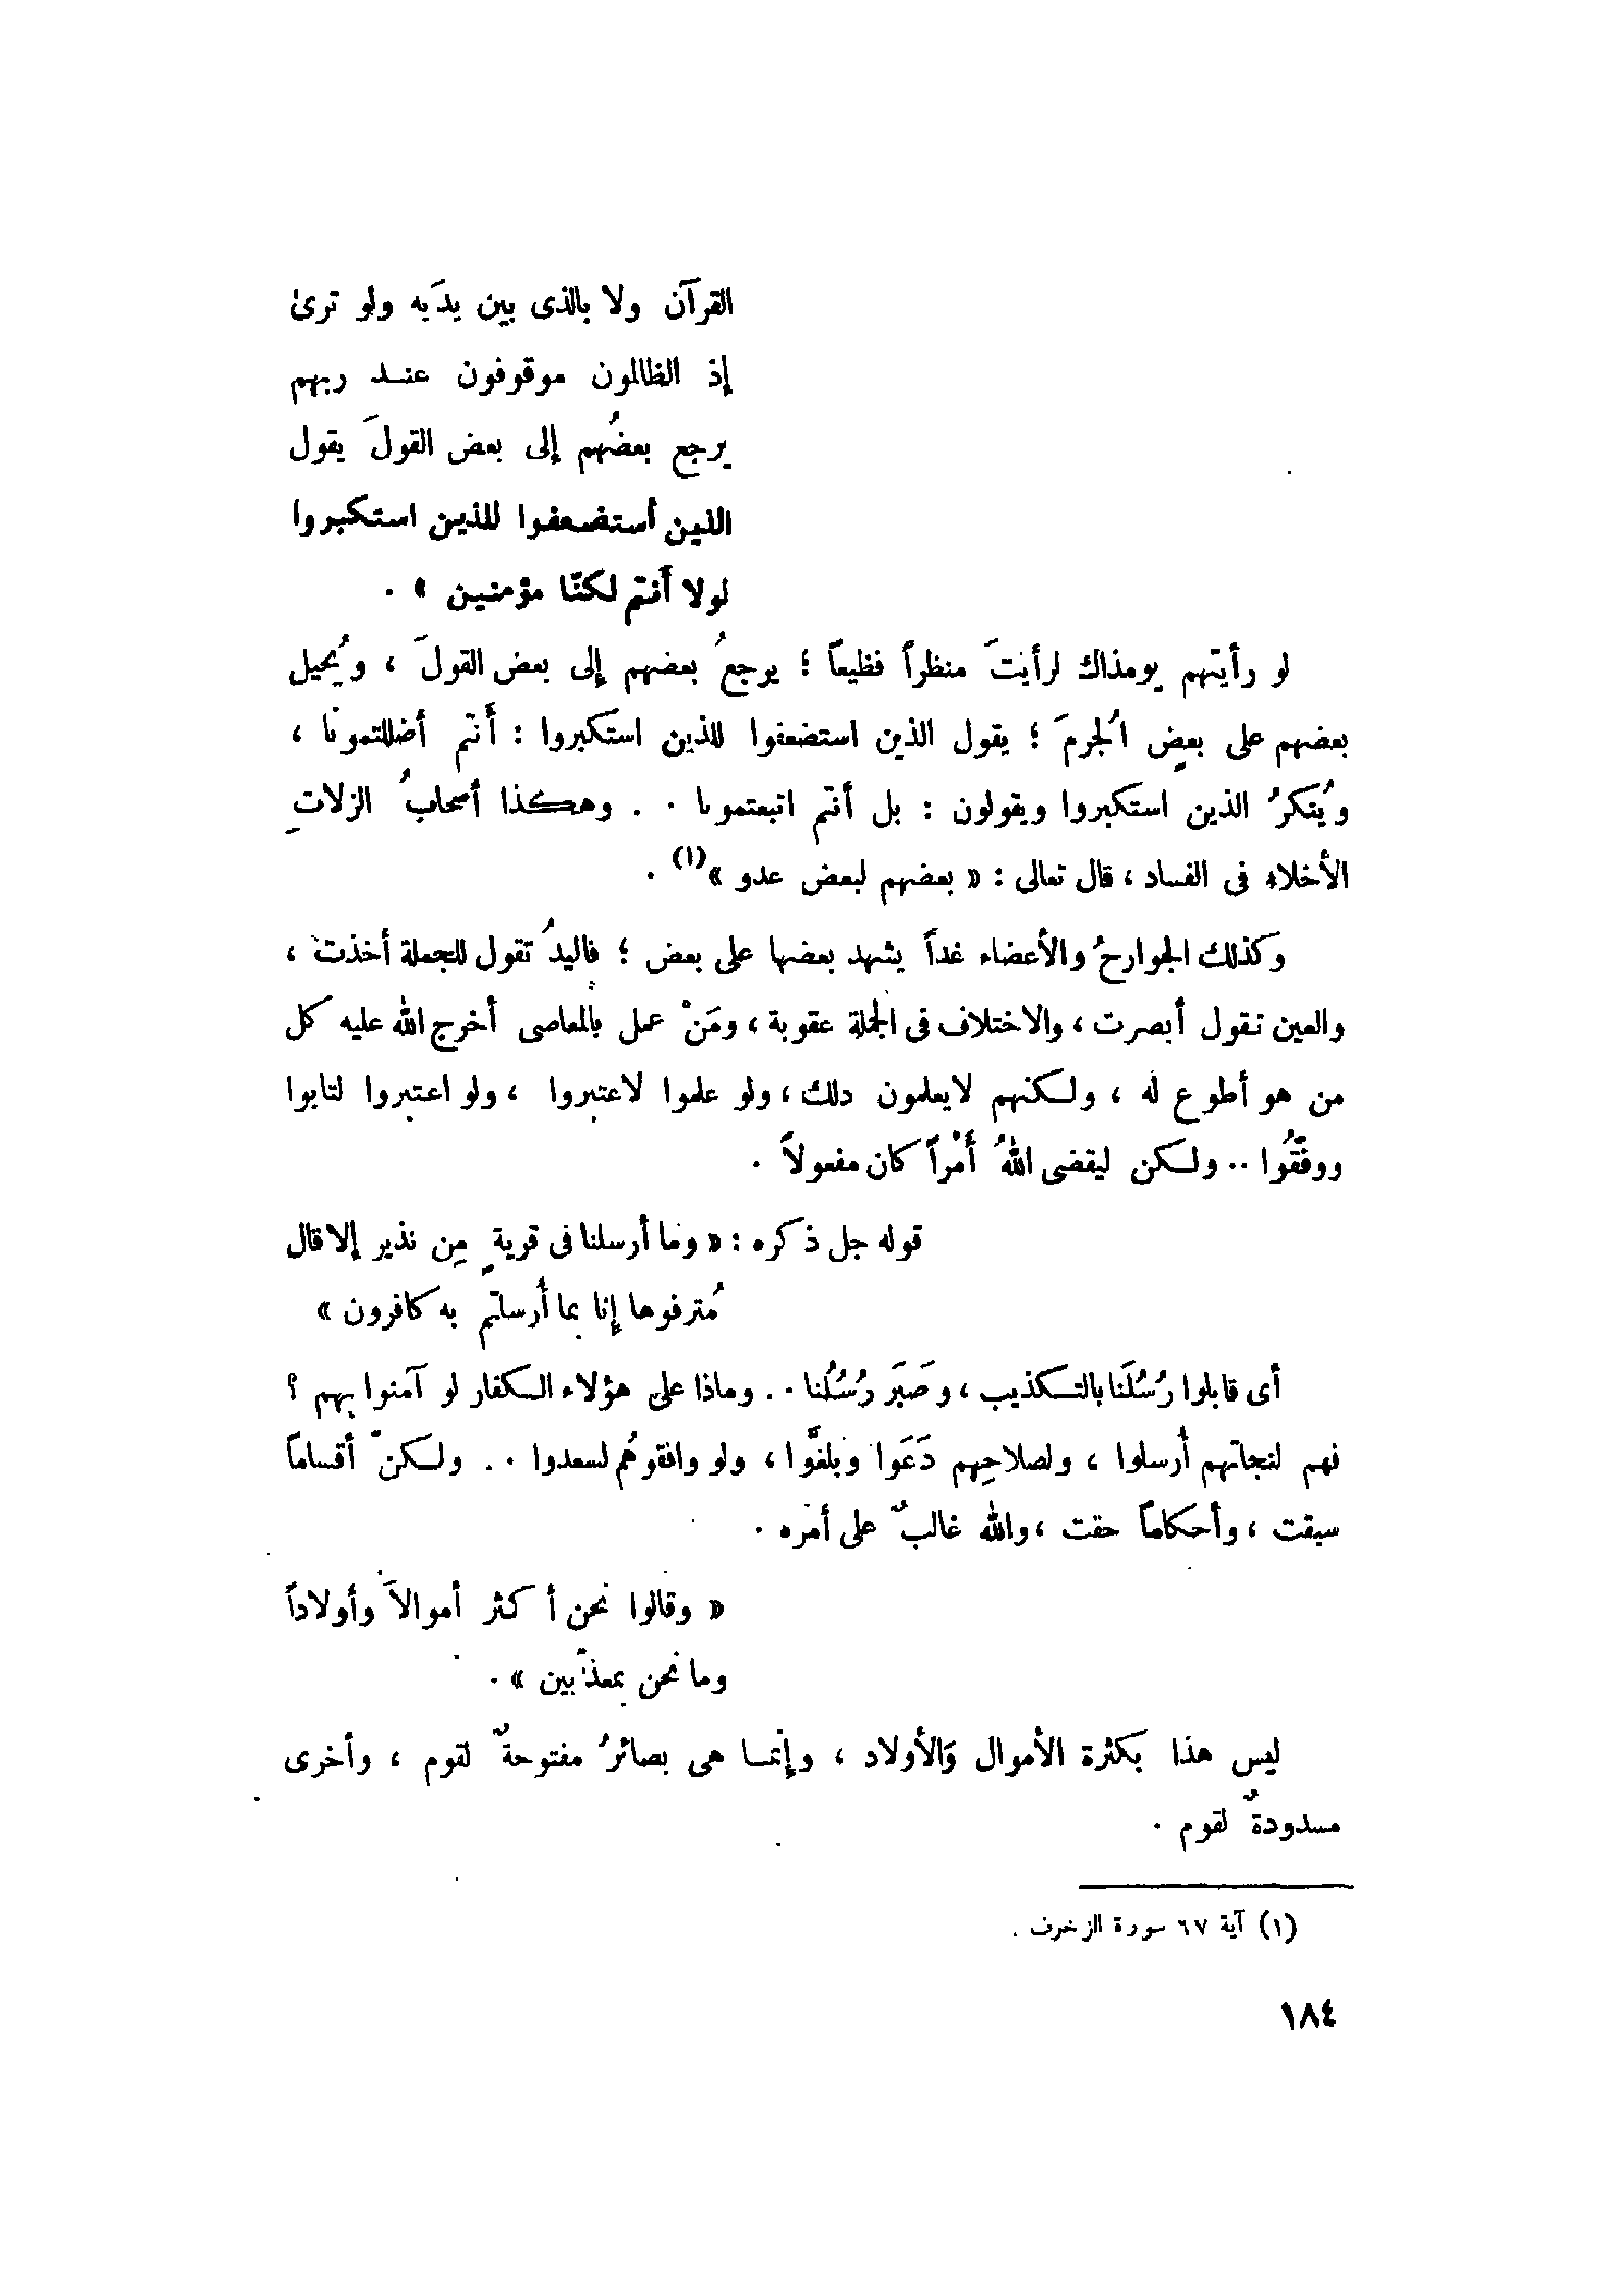 القرآن ولا بالذى بين يدَيه ولو ترىٰ
إذ الظالمون موقوفون عنـد ربهم
يرجع بعضُهم إلى بعض القولَ يقول
الذين أستضعفوا للذين استكبروا
لولا أنتم لكنّا مؤمنين » .
لو رأيتهم يومذاك لرأيتَ منظراً فظيعاً ؛ يرجعُ بعضهم إلى بعض القولَ ، ويُحيل
بعضهم على بعضٍ الُجرمَ ؛ يقول الذين استضعفوا للذين استكبروا : أنتم أضللتمونا ،
ويُنكرُ الذين استكبروا ويقولون : بل أنتم اتبعتمونا . . وهكذا أصحابُ الزلاتِ
الأخلاء فى الفساد ، قال تعالى : « بعضهم لبعض عدو »(١) .
وكذلك الجوارحُ والأعضاء غداً يشهد بعضها على بعض ؛ فاليدُ تقول للجملة أخذت ،
والعين تقول أبصرت ، والاختلاف فى الجملة عقوبة ، ومَنْ عمل بالمعاصى أخرج الله عليه كل
من هو أطوع له ، ولـكنهم لايعلمون ذلك ، ولو علموا لاعتبروا ، ولو اعتبروا لتابوا
ووفِّقُوا .. ولـكن ليقضى اللهُ أمْراً كان مفعولاً .
قوله جل ذكره : « وما أرسلنا فى قريةٍ مِن نذير إلا قال
مُترفوها إنا بما أُرسلتم به كافرون »
أى قابلوا رُسُلَنا بالتـكذيب ، وصَبَر رُسُلُنا . . وماذا على هؤلاء الـكفار لو آمنوا بهم ؟
فهم لنجاتهم أُرسلوا ، ولصلاحِهم دَعَوا وبلغَّوا ، ولو وافقوهُم لسعدوا . . ولـكنّ أقساماً
سبقت ، وأحكاماً حقت ، والله غالبٌ على أمره .
« وقالوا نحن أكثر أموالاً وأولاداً
وما نحن بمعذَّبين » .
ليس هذا بكثرة الأموال وَالأولاد ، وإنمـا هى بصائرُ مفتوحةٌ لقوم ، وأخرى
مسدودةٌ لقوم .
(١) آية ٦٧ سورة الزخرف .
١٨٤